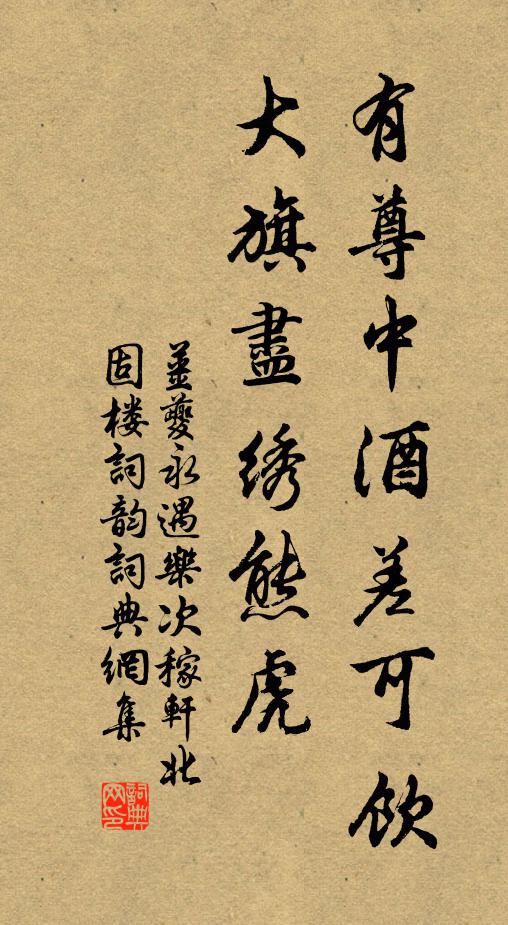 有尊中酒差可飲
大旗盡綉熊虎
姜夔永遇樂次稼軒北
固楼詞韵詞典網集
詞典网印